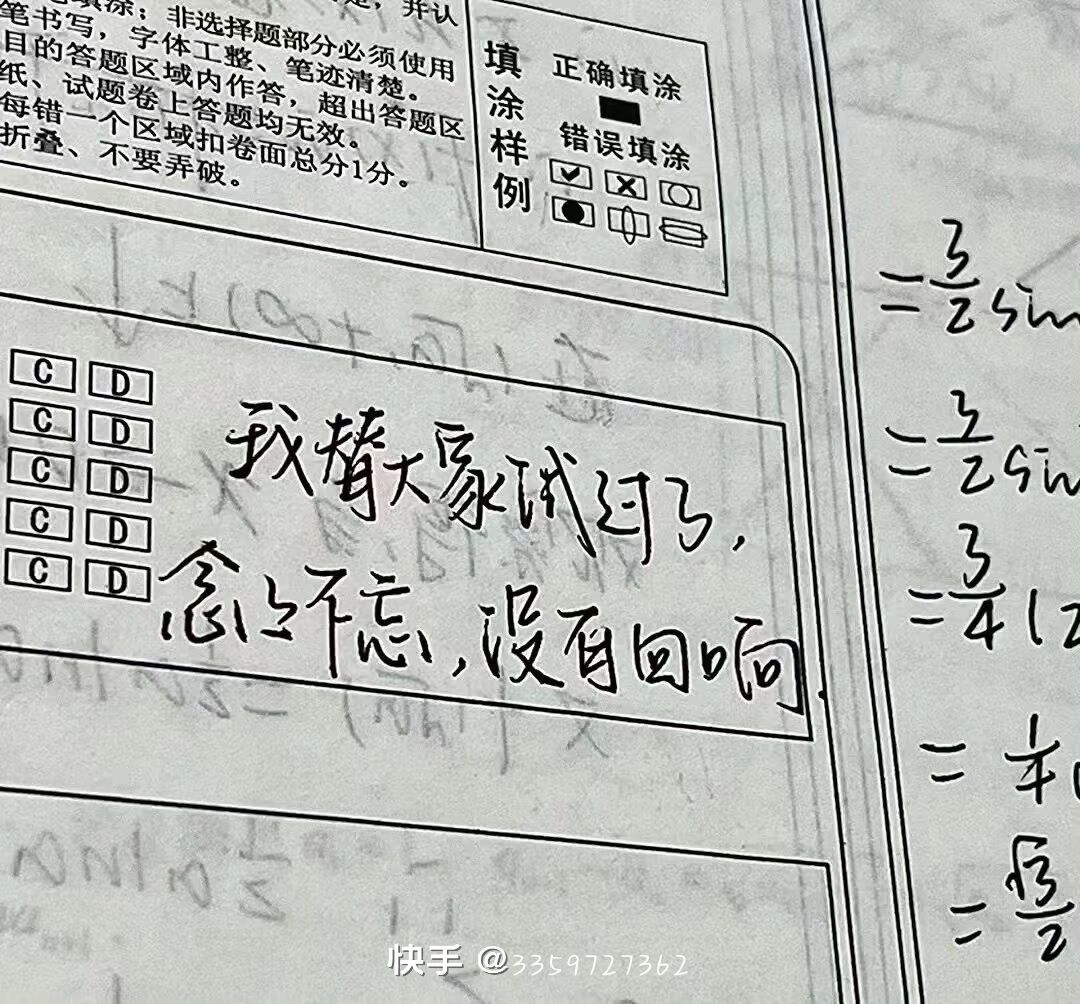 填涂；非选择题部分必须使用
笔书写，字体工整、笔迹清楚。
目的答题区域内作答，超出答题区
纸、试题卷上答题均无效。
每错一个区域扣卷面总分1分。
折叠、不要弄破。
填涂样例
正确填涂
错误填涂
C D
C D
C D
C D
C D
我替大家试过了，
念念不忘，没有回响
=3/2 sin
=3/2 sin
=3/4 (2
=1/4
=√3/2
快手 @3359727362